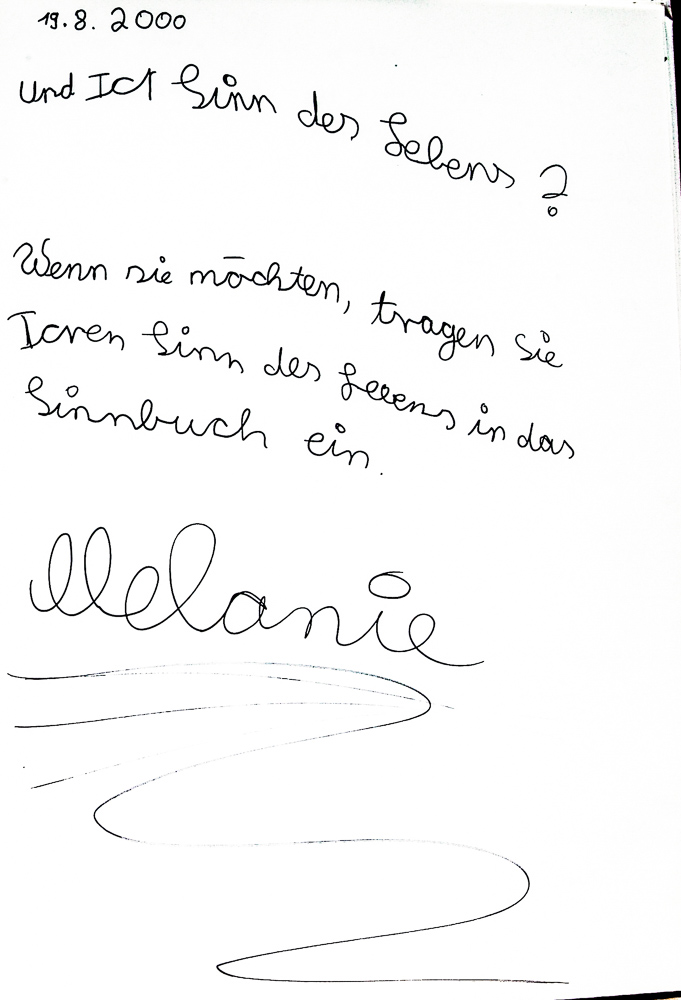 19.8.2000
und Ich Sinn des Lebens?
Wenn sie möchten, tragen Sie
Ihren Sinn des Lebens in das
Sinnbuch ein.
Melanie